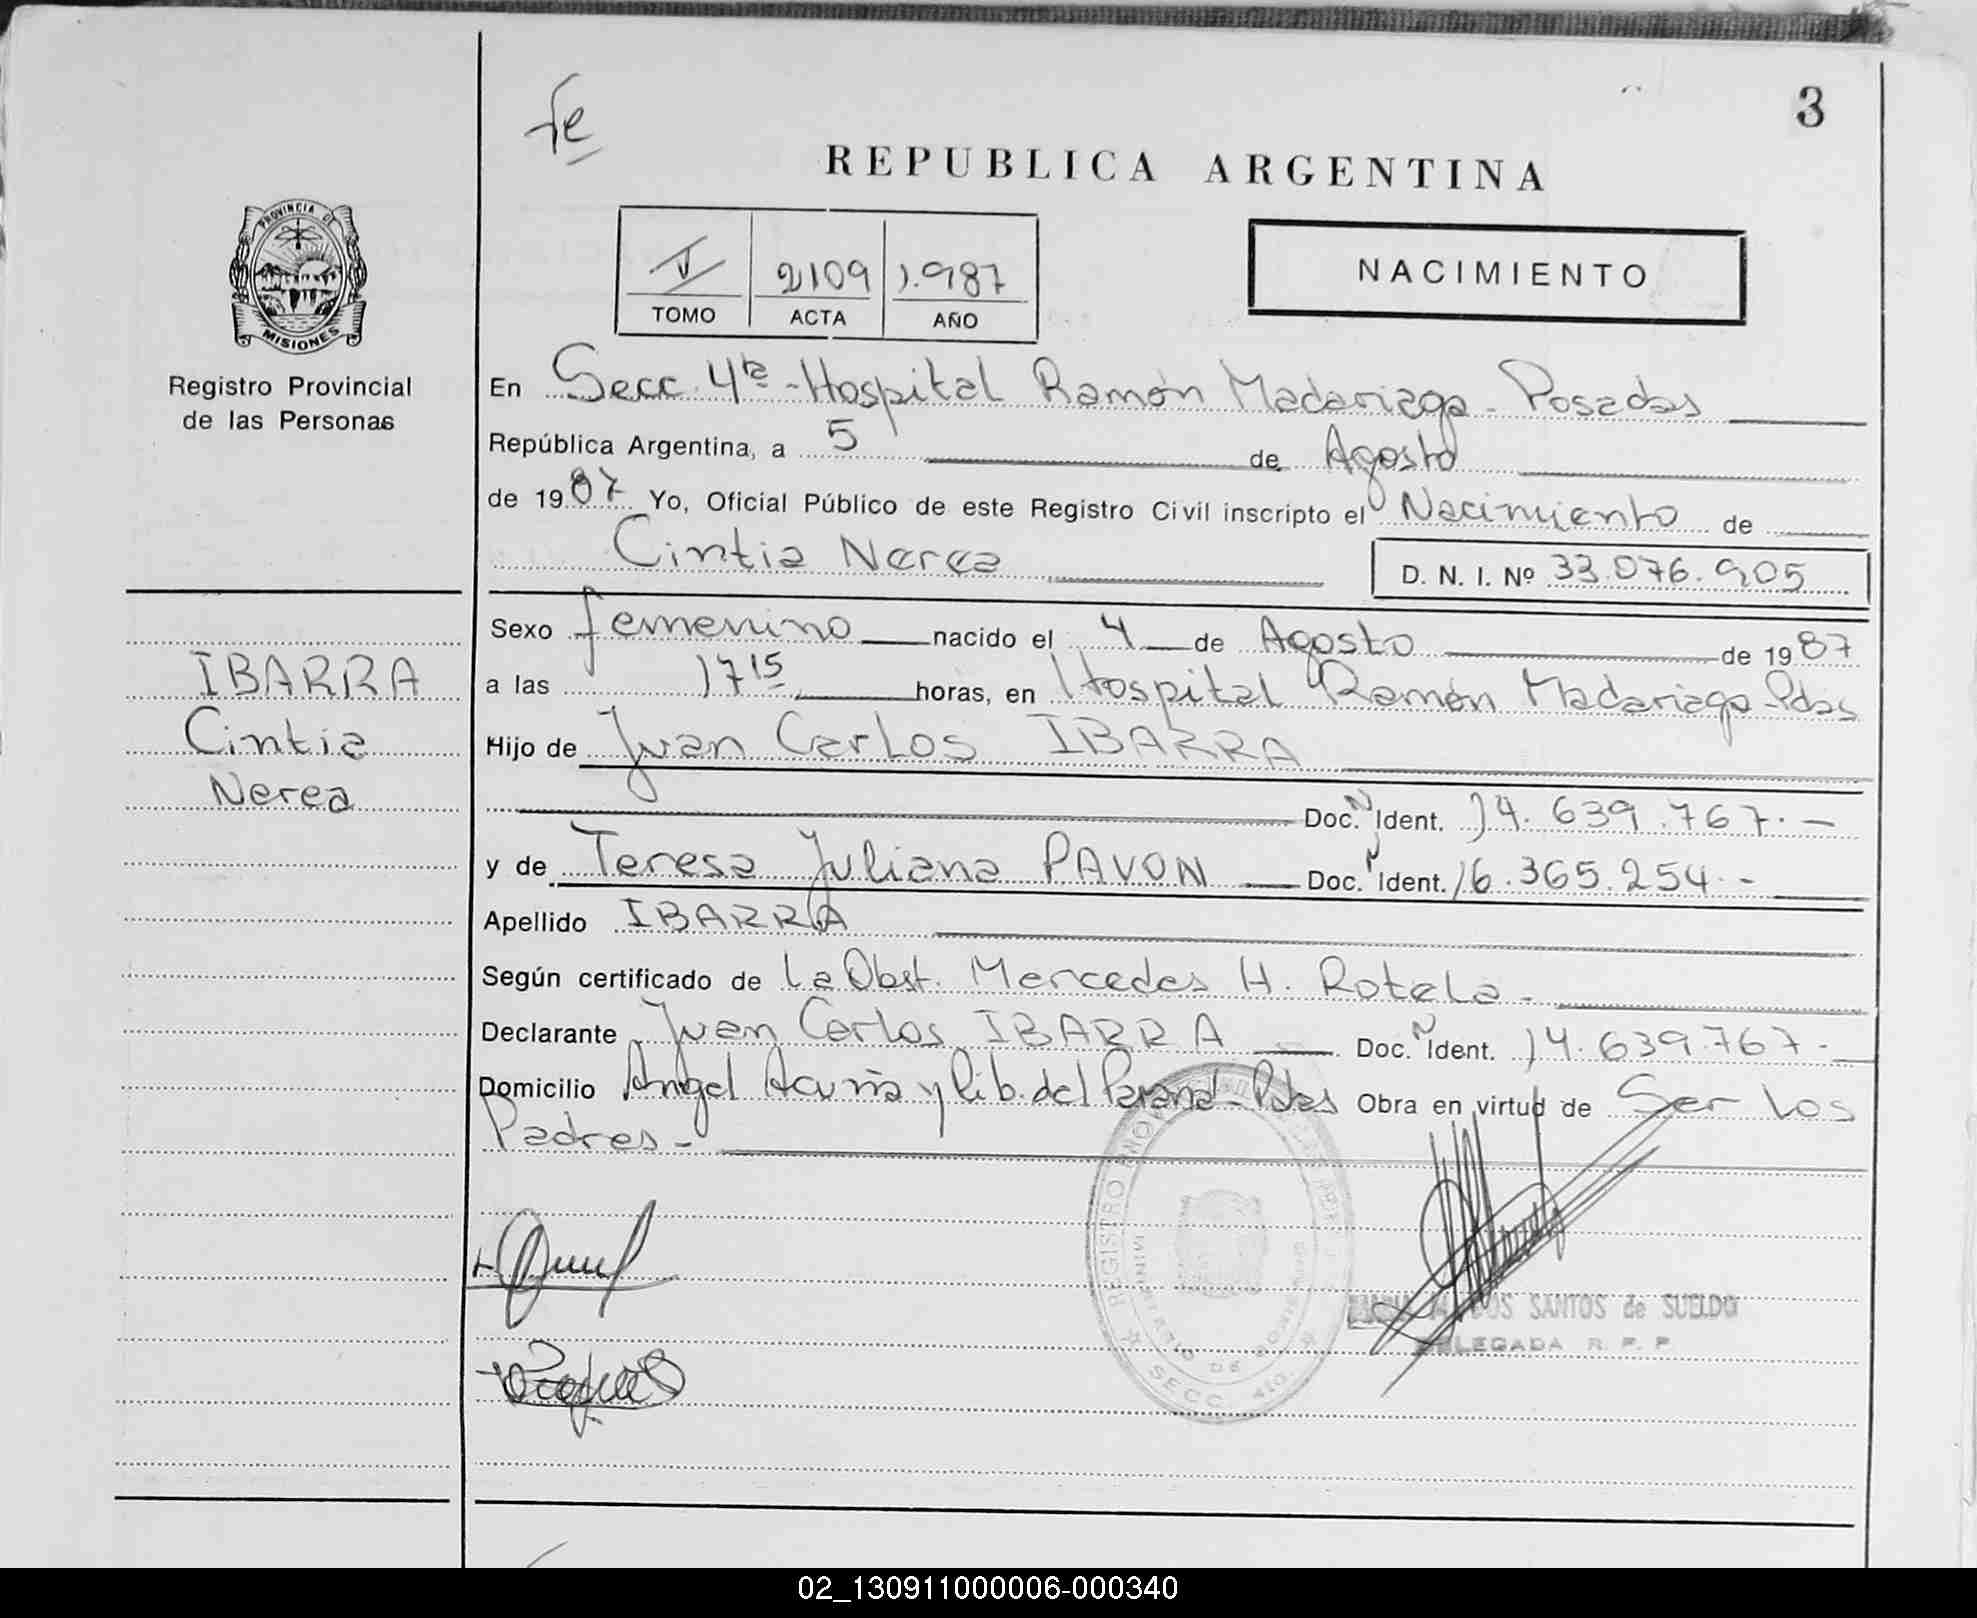 3
fe
REPUBLICA ARGENTINA
PROVINCIA DE
MISIONES
Registro Provincial
de las Personas
2109 1.987
TOMO ACTA AÑO
NACIMIENTO
En Secc. 4ta - Hospital Ramón Madariaga - Posadas
República Argentina, a 5 de Agosto
de 1987 Yo, Oficial Público de este Registro Civil inscripto el Nacimiento de
Cintia Nerea D. N. I. Nº 33.076.905
Sexo femenino nacido el 4 de Agosto de 1987
a las 17 15 horas, en Hospital Ramón Madariaga - Pdas
Hijo de Juan Carlos IBARRA
Doc. N Ident. 14.639.767.-
y de Teresa Juliana PAVON Doc. N Ident. 16.365.254.-
Apellido IBARRA
Según certificado de La Obst. Mercedes H. Rotela -
Declarante Juan Carlos IBARRA Doc. N Ident. 14.639.767-
Domicilio Angel Acuña y Rib. del Paraná - Pdas Obra en virtud de Ser los
Padres -
IBARRA
Cintia
Nerea
DOS SANTOS de SUELDO
DELEGADA R. P. P.
REGISTRO
SECC. 4ta.
02_130911000006-000340